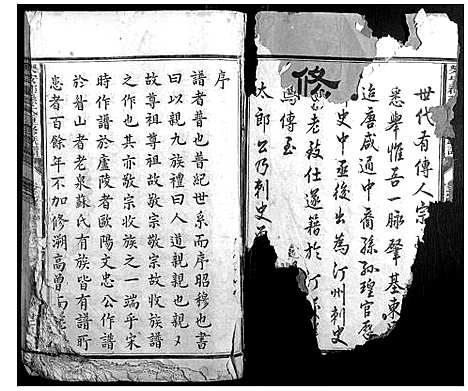 世代有傳人宗
悉舉惟吾一脉肇基東
迨唐咸通中裔孫孙瑝官歷
史中丞後出為汀州刺史
老致仕遂籍於汀
馬傳至
太郎公乃刺史
修
序
譜者普也普紀世系而序昭穆也書
曰以親九族禮曰人道親親也親々
故尊祖尊祖故敬宗敬宗故收族譜
之作也其亦敬宗收族之一端乎宋
時作譜於廬陵者歐陽文忠公作譜
於眉山者老泉蘇氏有族皆有譜所
患者百餘年不加修溯高曾而